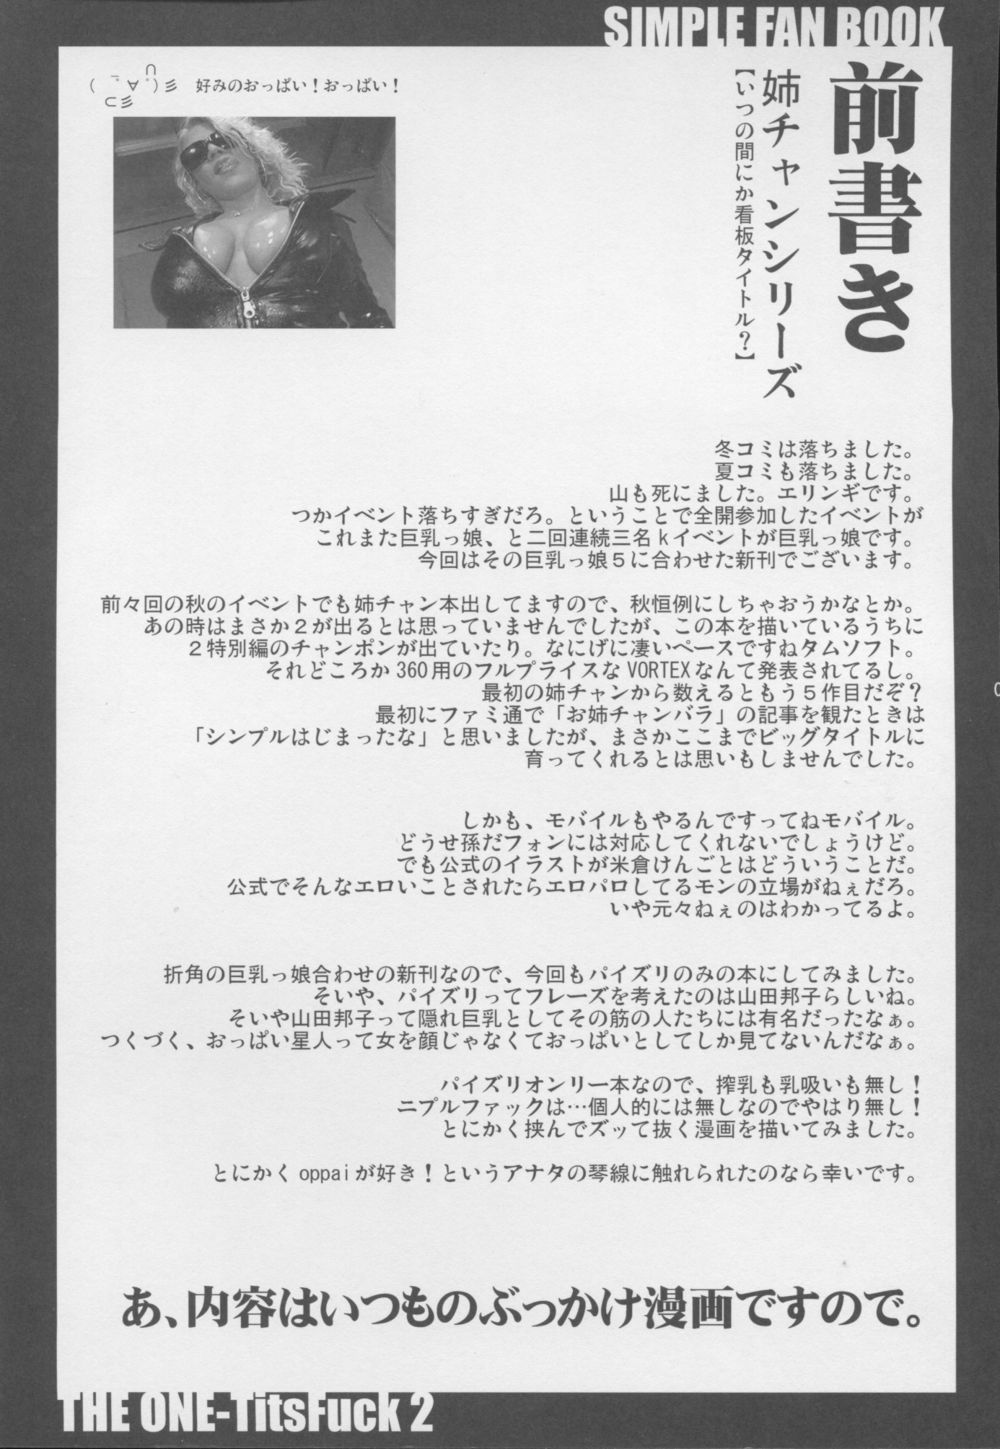 SIMPLE FAN BOOK
前書き
姉チャンシリーズ
【いつの間にか看板タイトル?】
好みのおっぱい!おっぱい!
冬コミは落ちました。
夏コミも落ちました。
山も死にました。エリンギです。
つかイベント落ちすぎだろ。ということで全開参加したイベントが
これまた巨乳っ娘、と二回連続三名kイベントが巨乳っ娘です。
今回はその巨乳っ娘5に合わせた新刊でございます。
前々回の秋のイベントでも姉チャン本出してますので、秋恒例にしちゃおうかなとか。
あの時はまさか2が出るとは思っていませんでしたが、この本を描いているうちに
2特別編のチャンポンが出ていたり。なにげに凄いペースですねタムソフト。
それどころか360用のフルプライスなVORTEXなんて発表されてるし。
最初の姉チャンから数えるともう5作目だぞ?
最初にファミ通で「お姉チャンバラ」の記事を観たときは
「シンプルはじまったな」と思いましたが、まさかここまでビッグタイトルに
育ってくれるとは思いもしませんでした。
しかも、モバイルもやるんですってねモバイル。
どうせ孫だフォンには対応してくれないでしょうけど。
でも公式のイラストが米倉けんごとはどういうことだ。
公式でそんなエロいことされたらエロパロしてるモンの立場がねぇだろ。
いや元々ねぇのはわかってるよ。
折角の巨乳っ娘合わせの新刊なので、今回もパイズリのみの本にしてみました。
そいや、パイズリってフレーズを考えたのは山田邦子らしいね。
そいや山田邦子って隠れ巨乳としてその筋の人たちには有名だったなぁ。
つくづく、おっぱい星人って女を顔じゃなくておっぱいとしてしか見てないんだなぁ。
パイズリオンリー本なので、搾乳も乳吸いも無し!
ニプルファックは…個人的には無しなのでやはり無し!
とにかく挟んでズッて抜く漫画を描いてみました。
とにかくoppaiが好き!というアナタの琴線に触れられたのなら幸いです。
あ、内容はいつものぶっかけ漫画ですので。
THE ONE-TitsFuck 2